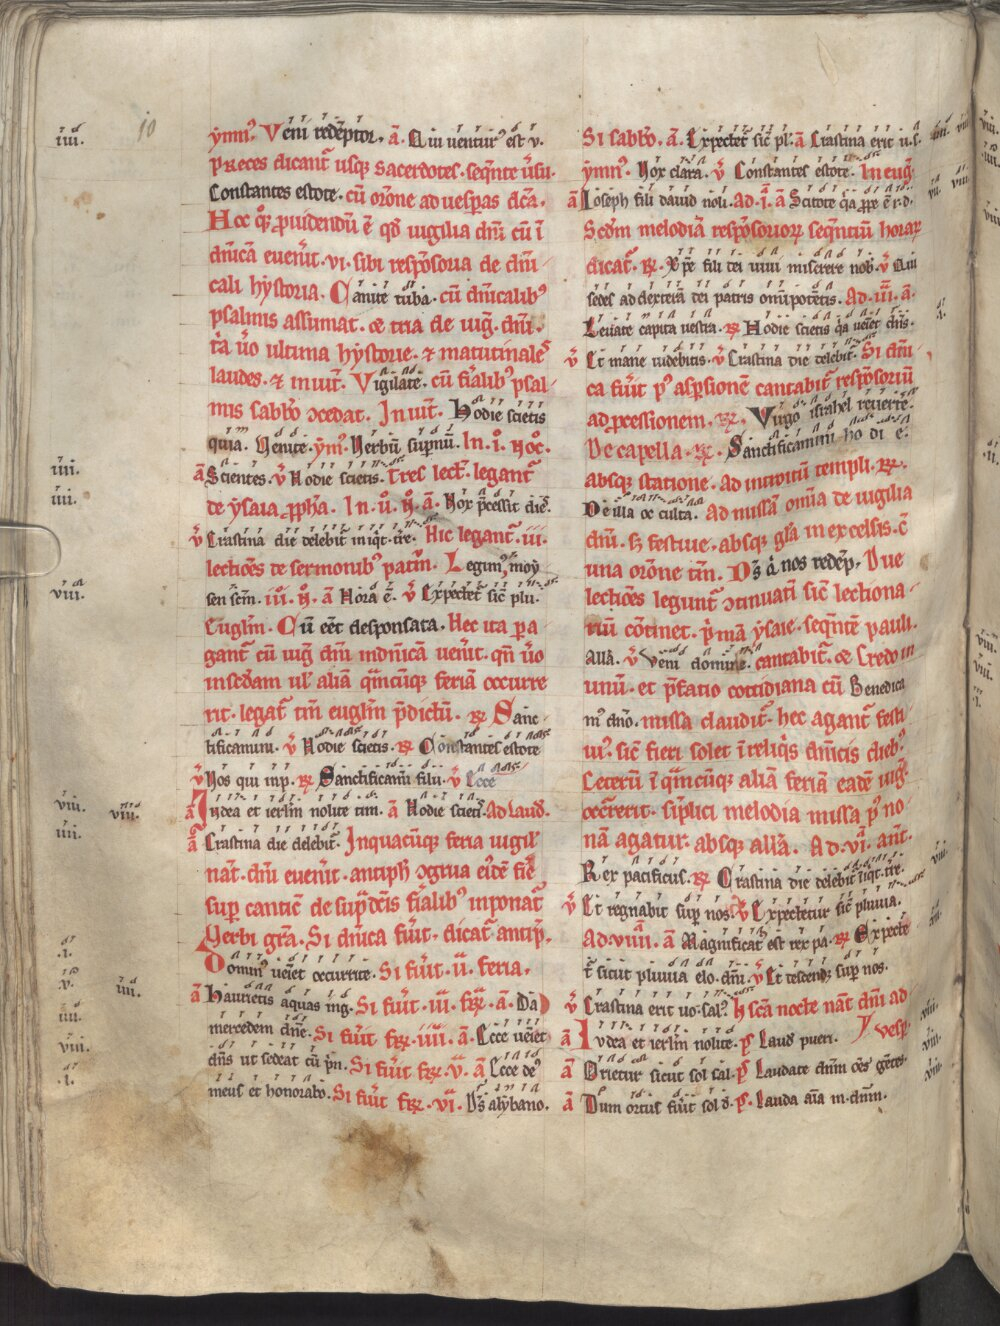 10
iiii.
ẏmnꝰ. Veni redẽptor. ã. Qui uenturꝰ est v.
preces dicant᷑ usq; sacerdotes. seq̃nte ũsu.
Constantes estote. cũ orõne ad uesp̃as dc̃a.
Hoc q̃ꝫ ꝓuidendũ ẽ qđ uigilia dñi cũ ĩ
dñica euen̾it. vi. sibi resp̃soria de dñi
cali hystoria. Canite tuba. cũ dñicalibꝰ
psalmis assumat. ⁊ tria de uig̃. dñi.
t̃a ũo ultima hystorie. ⁊ matutinales
laudes. ⁊ inuit̾. Vigilate. cũ fĩalibꝰ psal
mis sabb̃o ꝯcedat. Inuit̾. Hodie scietis
quia. Uenite. ym̃ꝰ. Uerbũ sup̃nũ. In. i. noc̾.
ã Scientes. v̾ Hodie scietis. Tres lect̃. legant᷑
iiii.
de ysaia ꝓph̃a. In. ii. ñ. ã. Nox p̃cessit dieș.
iiii.
v̾ Crastina die delebit᷑ iniqt̾. tr̃e. Hic legant᷑. iii.
lectiões de sermonibꝰ patrũ. Legimꝰ moy
sen sc̃m. iii. ñ. ã Hora ẽ. v̾ Expectet᷑ sic̃ plu.
viii.
Euglm̃. Cũ eẽt desponsata. Hec ita p a
gant᷑ cũ uig̃ dñi in dñica uen̾it. qñ ũo
in sec̃dam ul̾ aliã q̃mcũq; feriã occurre
rit. legat᷑ tm̃ euglm̃ p̃dictũ. ꝶ Sanc
tificamini. v̾ Hodie scietis. ꝶ Constantes estote
v̾ Uos qui in p. ꝶ Sanctificam̃ filii. v̾ Ecce
ã Iudea et ierl̃m nolite tim. ã Hodie scietis. Ad laud̾.
viii. viii.
ã Crastina die delebit᷑. In quacũq; feria uigil̾
iiii.
nat̾. dñi euen̾it. antiph̾ ꝯgrua eidẽ fiẽ
sup̾ cantic̃ de sup̃dc̃is fĩalibꝰ inponat᷑
Uerbi gr̃a. Si dñica fũit. dicat᷑ antip̃.
Dominꝰ ueiet occurrite. Si fũit. ii. feria.
.i.
ã Haurietis aquas in g. Si fũit. iii. fꝶ. ã. Da
v. iiii.
mercedem dñe. Si fũit fꝶ. iiii. ã. Ecce ueiet
iiii.
dñs ut sedeat cũ p̃n. Si fũit fꝶ. v. ã Ecce deꝰ
viii.
meus et honorabo. Si fũit fꝶ. vi. Ds̃ a lybano.
.i.
Si sabb̃o. ã. Expectet᷑ sic̃ pl̾. ã Crastina erit u. s̃.
ẏmnꝰ. Uox clara. v̾ Constantes estote. In eug̃.
ã Ioseph fili dauid noli. Ad. i. ã Scitote q̃a ꝓpe ẽ r. d.
Sc̃dm melodiã resp̃soriorꝝ seq̃ntiũ horarꝝ
dicat᷑. ꝶ. Xp̃e fili dei uiui miserere nob̾. v̾ Qui
sedes ad dexterã dei patris omĩpotẽtis. Ad. iii. ã.
Leuate capita uestra. ꝶ Hodie scietis q̃a ueiet dñs.
v̾ Et mane uidebitis. v̾ Crastina die delebit᷑. Si dñi
ca fũit pꝰ asp̃sionẽ cantabit᷑ resp̃soriũ
ad ꝓcessionem. ꝶ. Virgo israhel reuert̃e.
De capella. ꝶ. Sanctificamini hodie.
absq; statione. Ad introitũ templi. ꝶ.
De illa occulta. Ad missã omĩa de uigilia
dñi. s; festiue. absq; gl̃a in excelsis. c̃
una orõne tm̃. Ds̃ q̃ nos redẽp. Due
lectiões legunt᷑ ꝯtinuati sic̃ lectiona
riũ cõtinet. p̾mã ysaie. seq̃ntẽ pauli.
all̃a. v̾ Veni domine. cantabit᷑. ⁊ Credo in
unũ. et p̃fatio cottidiana cũ Benedica
mꝰ dño. missa claudit᷑. hec agant᷑ festi
ui᷒. sic̃ fieri solet ĩ reliq̾s dñicis diebꝰ.
Ceterũ ĩ q̃mcũq; aliã feriã eadẽ uig̃.
occr̃erit. sĩplici melodia missa pꝰ no
nã agatur. absq; all̃a. Ad. vi. ant̃.
Rex pacificus. ꝶ Crastina die delebit᷑ iniqt̾. tr̃e.
v̾ Et regnabit sup̾ nos. v̾ Expectetur sic̃ pluuia.
Ad. viiii. ã Magnificat᷑ est rex pa. ꝶ Expecte
t᷑ sicut pluuia elo. dñi. v̾ Et descendꝫ sup̾ nos.
v̾ Crastina erit uo. sal̾. In sc̃a nocte nat̾ dñi ad vesp̾.
ã Iudea et ierl̃m nolite. p̾s Laud̾ pueri.
ã Orietur sicut sol sal. p̾s Laudate dñm oẽs gẽtes.
ã Dum ortus fũit sol d̾. p̾s. Lauda aĩa m̾ dñm.